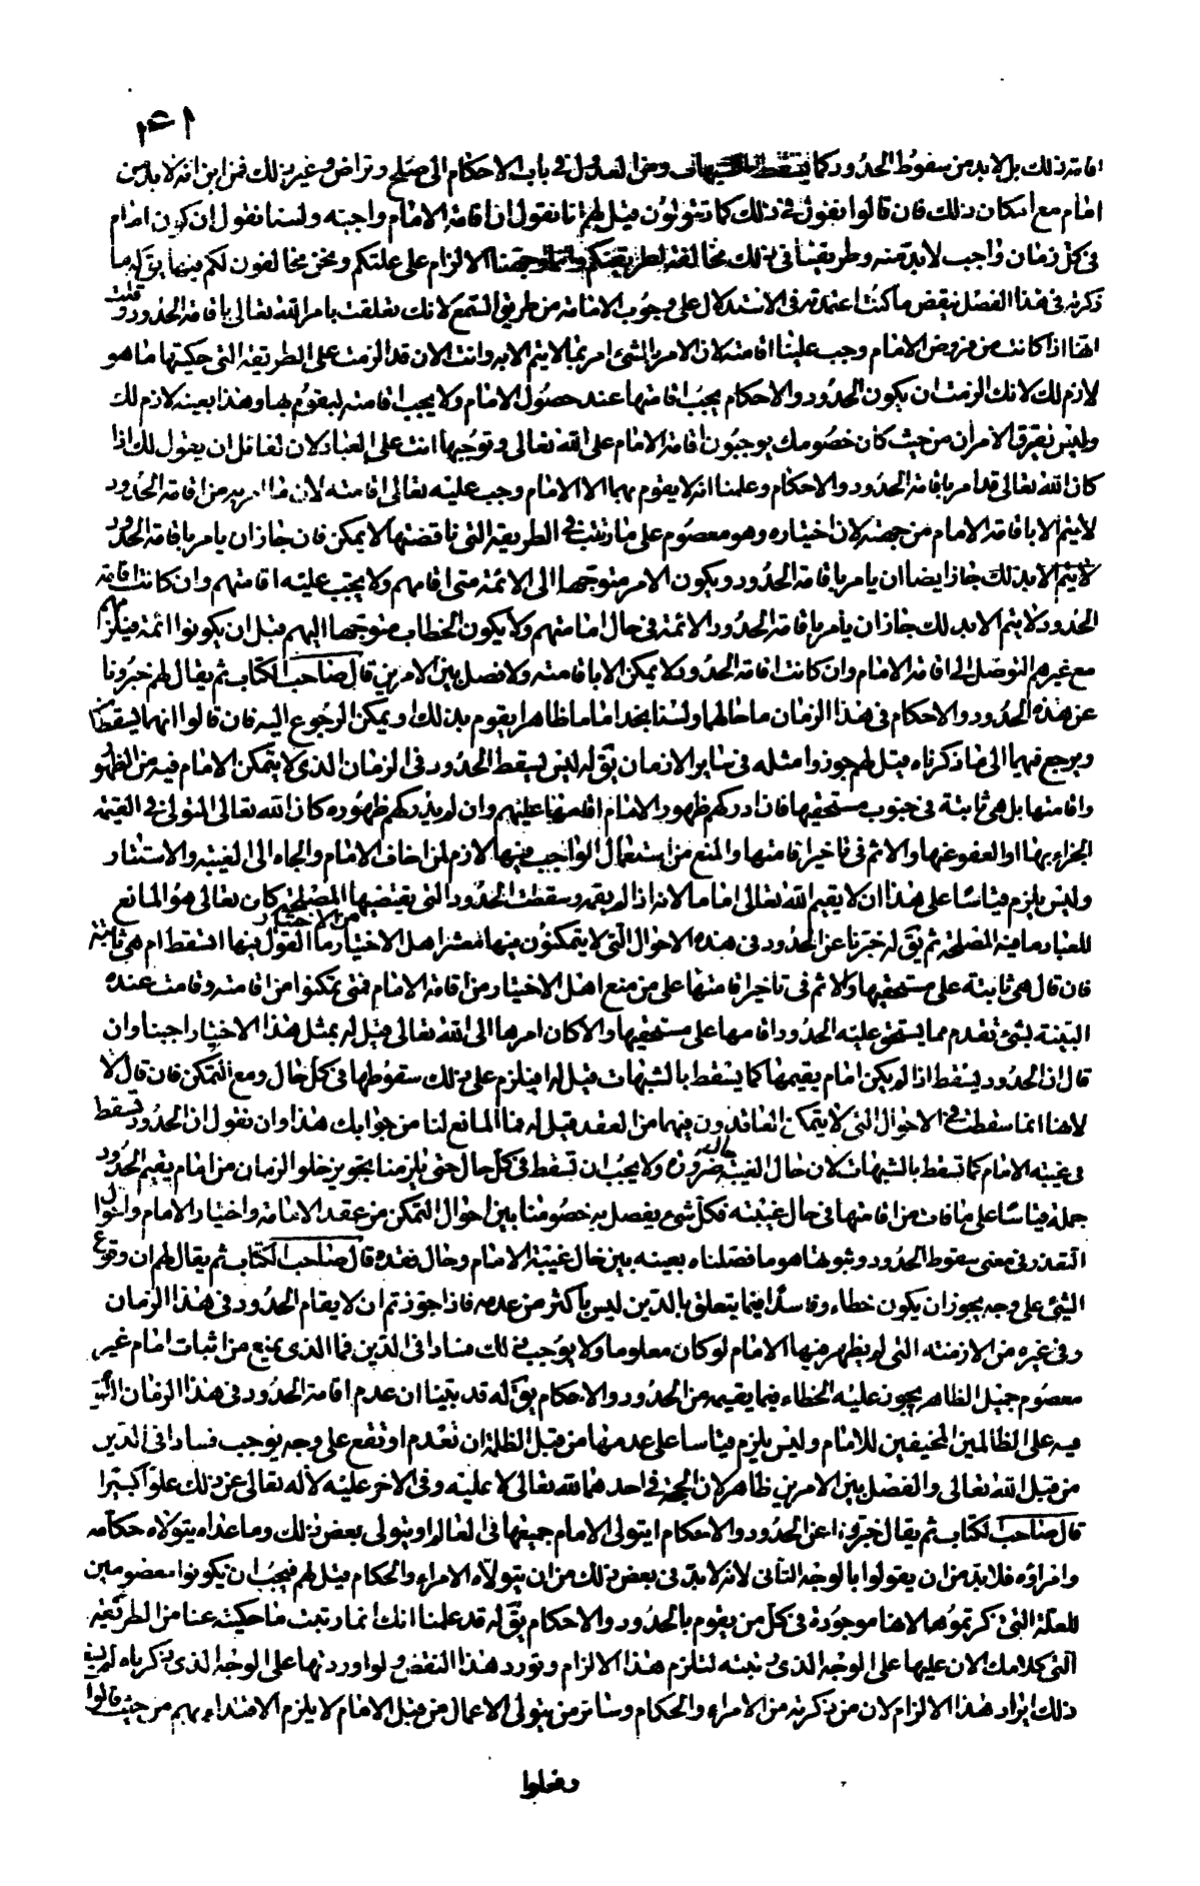 اقامة ذلك بل لابد من سقوط الحدود كما ومن العدول في باب الاحكام الى صلح وتراض وغير ذلك فمن اين انه لابد من
امام مع امكان ذلك فان قالوا نقول في ذلك كما تقولون قيل لهم انا نقول ان اقامة الامام واجبة ولسنا نقول ان كون امام
في كل زمان واجب لابد منه وطريقتنا في ذلك مخالفة لطريقتكم وانما وجهنا الالزام على علتكم ونحن مخالفون لكم فيها يق له ما
ذكرته في هذا الفصل ينقض ما كنت اعتمدته في الاستدلال على وجوب الامامة من طريق السمع لانك تعلقت بامر الله تعالى باقامة الحدود وقلت
انها اذا كانت من فروض الامام وجب علينا اقامته لان الامر بالشئ امر بما لا يتم الا به وانت الان قد الزمت على الطريقة التي حكيتها ما هو
لازم لك لانك الزمت ان يكون الحدود والاحكام يجب اقامتها عند حصول الامام ولا يجب اقامته ليقوم بها وهذا بعينه لازم لك
وليس يفترق الامران من حيث كان خصومك يوجبون اقامة الامام على الله تعالى وتوجبها انت على العباد لان لقائل ان يقول لك اذا
كان الله تعالى قد امر باقامة الحدود والاحكام وعلمنا انه لا يقوم بهما الا الامام وجب عليه تعالى اقامته لان ما امر به من اقامة الحدود
لا يتم الا باقامة الامام من جهته لان اختياره وهو معصوم على ما رتبت في الطريقة التي ناقضتها لا يمكن فان جاز ان يامر باقامة الحدود
لا يتم الا بذلك جاز ايضا ان يامر باقامة الحدود ويكون الامر متوجها الى الائمة متى اقامهم ولا يجب عليه اقامتهم وان كانت اقامة
الحدود لا يتم الا بذلك جاز ان يامر باقامة الحدود الائمة في حال امامتهم ولا يكون الخطاب متوجها اليهم قبل ان يكونوا ائمة فيلزمهم
مع غيرهم التوصل الى اقامة الامام وان كانت اقامة الحدود لا يمكن الا باقامته ولا فصل بين الامرين قال صاحب الكتاب ثم يقال لهم خبرونا
عن هذه الحدود والاحكام في هذا الزمان ما حالهما ولسنا نجد اماما ظاهرا يقوم بذلك او يمكن الرجوع اليه فان قالوا انهما يسقطان
ويرجع فيهما الى ما ذكرناه قيل لهم جوزوا مثله في سائر الازمان يق له ليس يسقط الحدود في الزمان الذي لا يتمكن الامام فيه من الظهور
واقامتها بل هي ثابتة في جنوب مستحقيها فان ادركهم ظهور الامام اقامها عليهم وان لم يدركهم ظهوره كان الله تعالى المتولي في القيمة
الجزاء بها او العفو عنها والاثم في تاخير اقامتها والمنع من استعمال الواجب فيها لازم لمن اخاف الامام والجاه الى الغيبة والاستتار
وليس يلزم قياسا على هذا ان لا يقيم الله تعالى اماما لانه اذا لم يقمه وسقطت الحدود التي يقتضيها المصلحة كان تعالى هو المانع
للعباد ما فيه المصلحة ثم يق له خبرنا عن الحدود في هذه الاحوال التي لا يتمكنون فيها معشر اهل الاختيار من الاختيار ما القول فيها اتسقط ام هي ثابتة
فان قال هي ثابتة على مستحقيها والاثم في تاخير اقامتها على من منع اهل الاختيار من اقامة الامام فمتى تمكنوا من اقامته وقامت عنده
البينة بشئ تقدم مما يستحق عليه الحدود اقامها على مستحقيها والا كان امرها الى الله تعالى قيل له بمثل هذا الاختيار اجبنا وان
قال ان الحدود يسقط اذا لم يكن امام يقيمها كما يسقط بالشبهات قيل له افيلزم على ذلك سقوطها في كل حال ومع التمكن فان قال لا
لانها انما سقطت في الاحوال التي لا يتمكن العاقدون فيها من العقد قيل له فما المانع لنا من جوابك هذا وان نقول ان الحدود تسقط
في غيبة الامام كما تسقط بالشبهات لان حال الغيبة حال ضرورة ولا يجب ان تسقط في كل حال حتى يلزمنا تجويز خلو الزمان من امام يقيم الحدود
جملة قياسا على ما فات من اقامتها في حال غيبته فكل شئ يفصل به خصومنا بين احوال التمكن من عقد الامامة واختيار الامام واحوال
التعذر في معنى سقوط الحدود وثبوتها هو ما فصلناه بعينه بين حال غيبة الامام وحال فقده قال صاحب الكتاب ثم يقال لهم ان وقوع
الشئ على وجه يجوز ان يكون خطاء وفاسدا فيما يتعلق بالدين ليس باكثر من عدمه فاذا جوزتم ان لا يقام الحدود في هذا الزمان
وفي غيره من الازمنة التي لم يظهر فيها الامام لو كان معلوما ولا يوجب ذلك فسادا في الدين فما الذي يمنع من اثبات امام غير
معصوم جميل الظاهر يجوز عليه الخطاء فيما يقيمه من الحدود والاحكام يق له قد بينا ان عدم اقامة الحدود في هذا الزمان
فيه على الظالمين المخيفين للامام وليس يلزم قياسا على عدمها من قبل الظلمة ان تعدم او تقع على وجه يوجب فسادا في الدين
من قبل الله تعالى والفصل بين الامرين ظاهر لان الحجة في احدهما لله تعالى لا عليه وفي الاخر عليه لا له تعالى عن ذلك علوا كبيرا
قال صاحب الكتاب ثم يقال خبرونا عن الحدود والاحكام ايتولى الامام جميعها في العالم او يتولى بعض ذلك وما عداه يتولاه حكامه
وامراؤه فلابد من ان يقولوا بالوجه الثاني لانه لابد في بعض ذلك من ان يتولاه الامراء والحكام قيل لهم فيجب ان يكونوا معصومين
للعلة التي ذكرتموها لانها موجودة في كل من يقوم بالحدود والاحكام يق له قد علمنا انك انما رتبت ما حكيته عنا من الطريقة
التي كلامك الان عليها على الوجه الذي رتبته لتلزم هذا الالزام وتورد هذا النقض ولو اوردتها على الوجه الذي ذكرناه لم
ذلك ايراد هذا الالزام لان من ذكرته من الامراء والحكام وسائر من يتولى الاعمال من قبل الامام لا يلزم الاقتداء بهم من حيث قالوا
وفعلوا